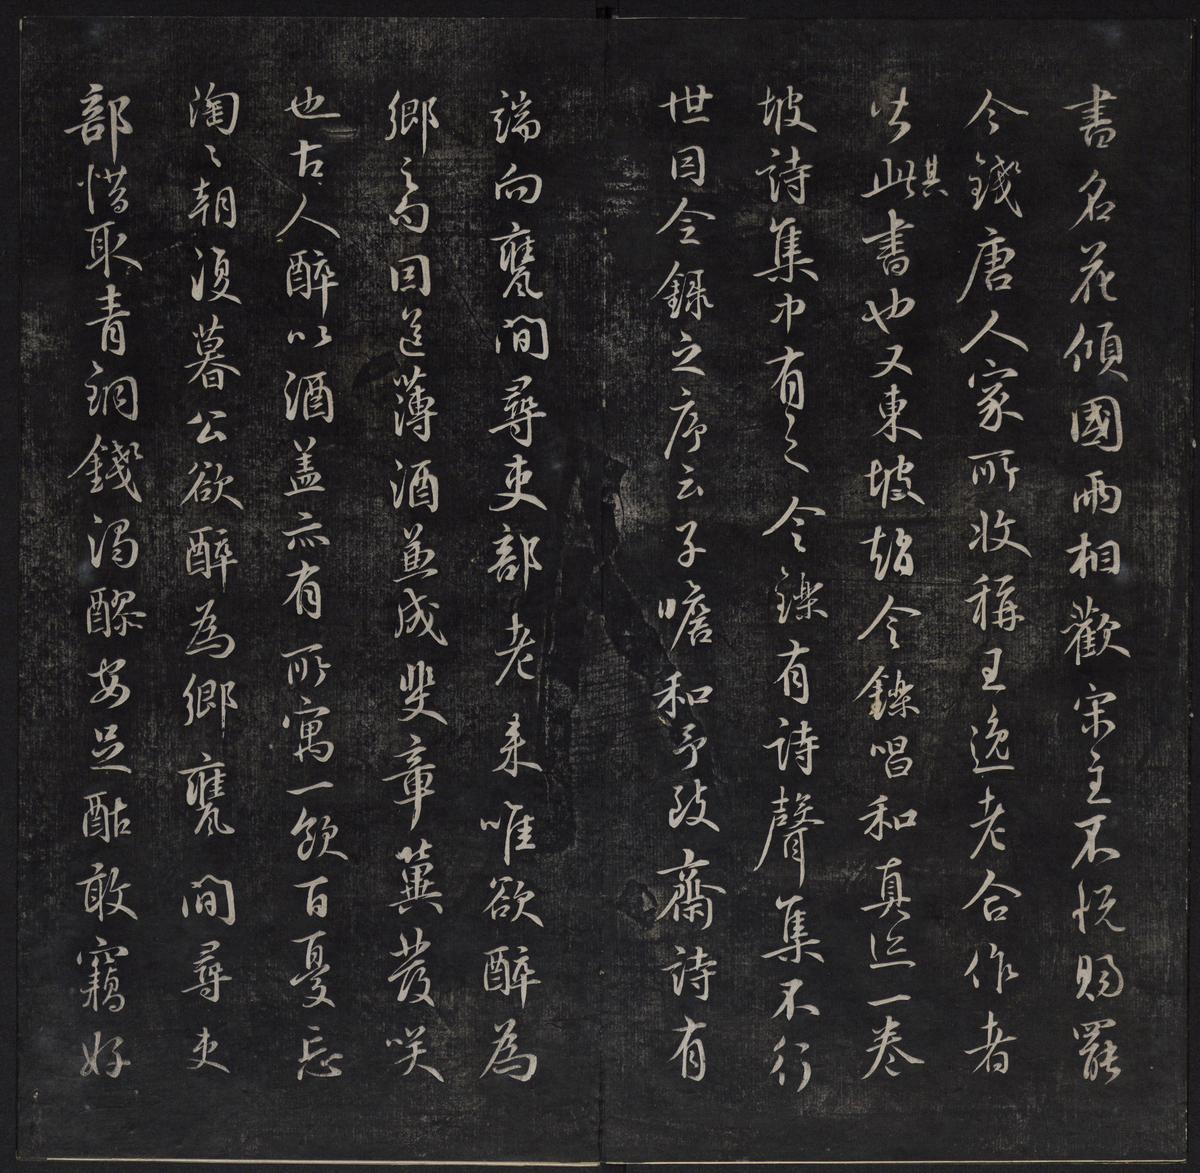 書名花傾國兩相歡宋主不悅賜罷
今錢唐人家所收稱王逸老合作者
此其書也又東坡趙令鑠唱和真迹一卷
坡詩集中有之令鑠有詩聲集不行
世因全錄之序云子瞻和予致齋詩有
端向甕間尋吏部老来唯欲醉為
鄉之句因送薄酒兼成斐章冀發咲
也古人醉以酒盖亦有所寓一飲百憂忘
淘〻朝復暮公欲醉為鄉甕間尋吏
部惜取青銅錢濁醪安足酤敢竊好